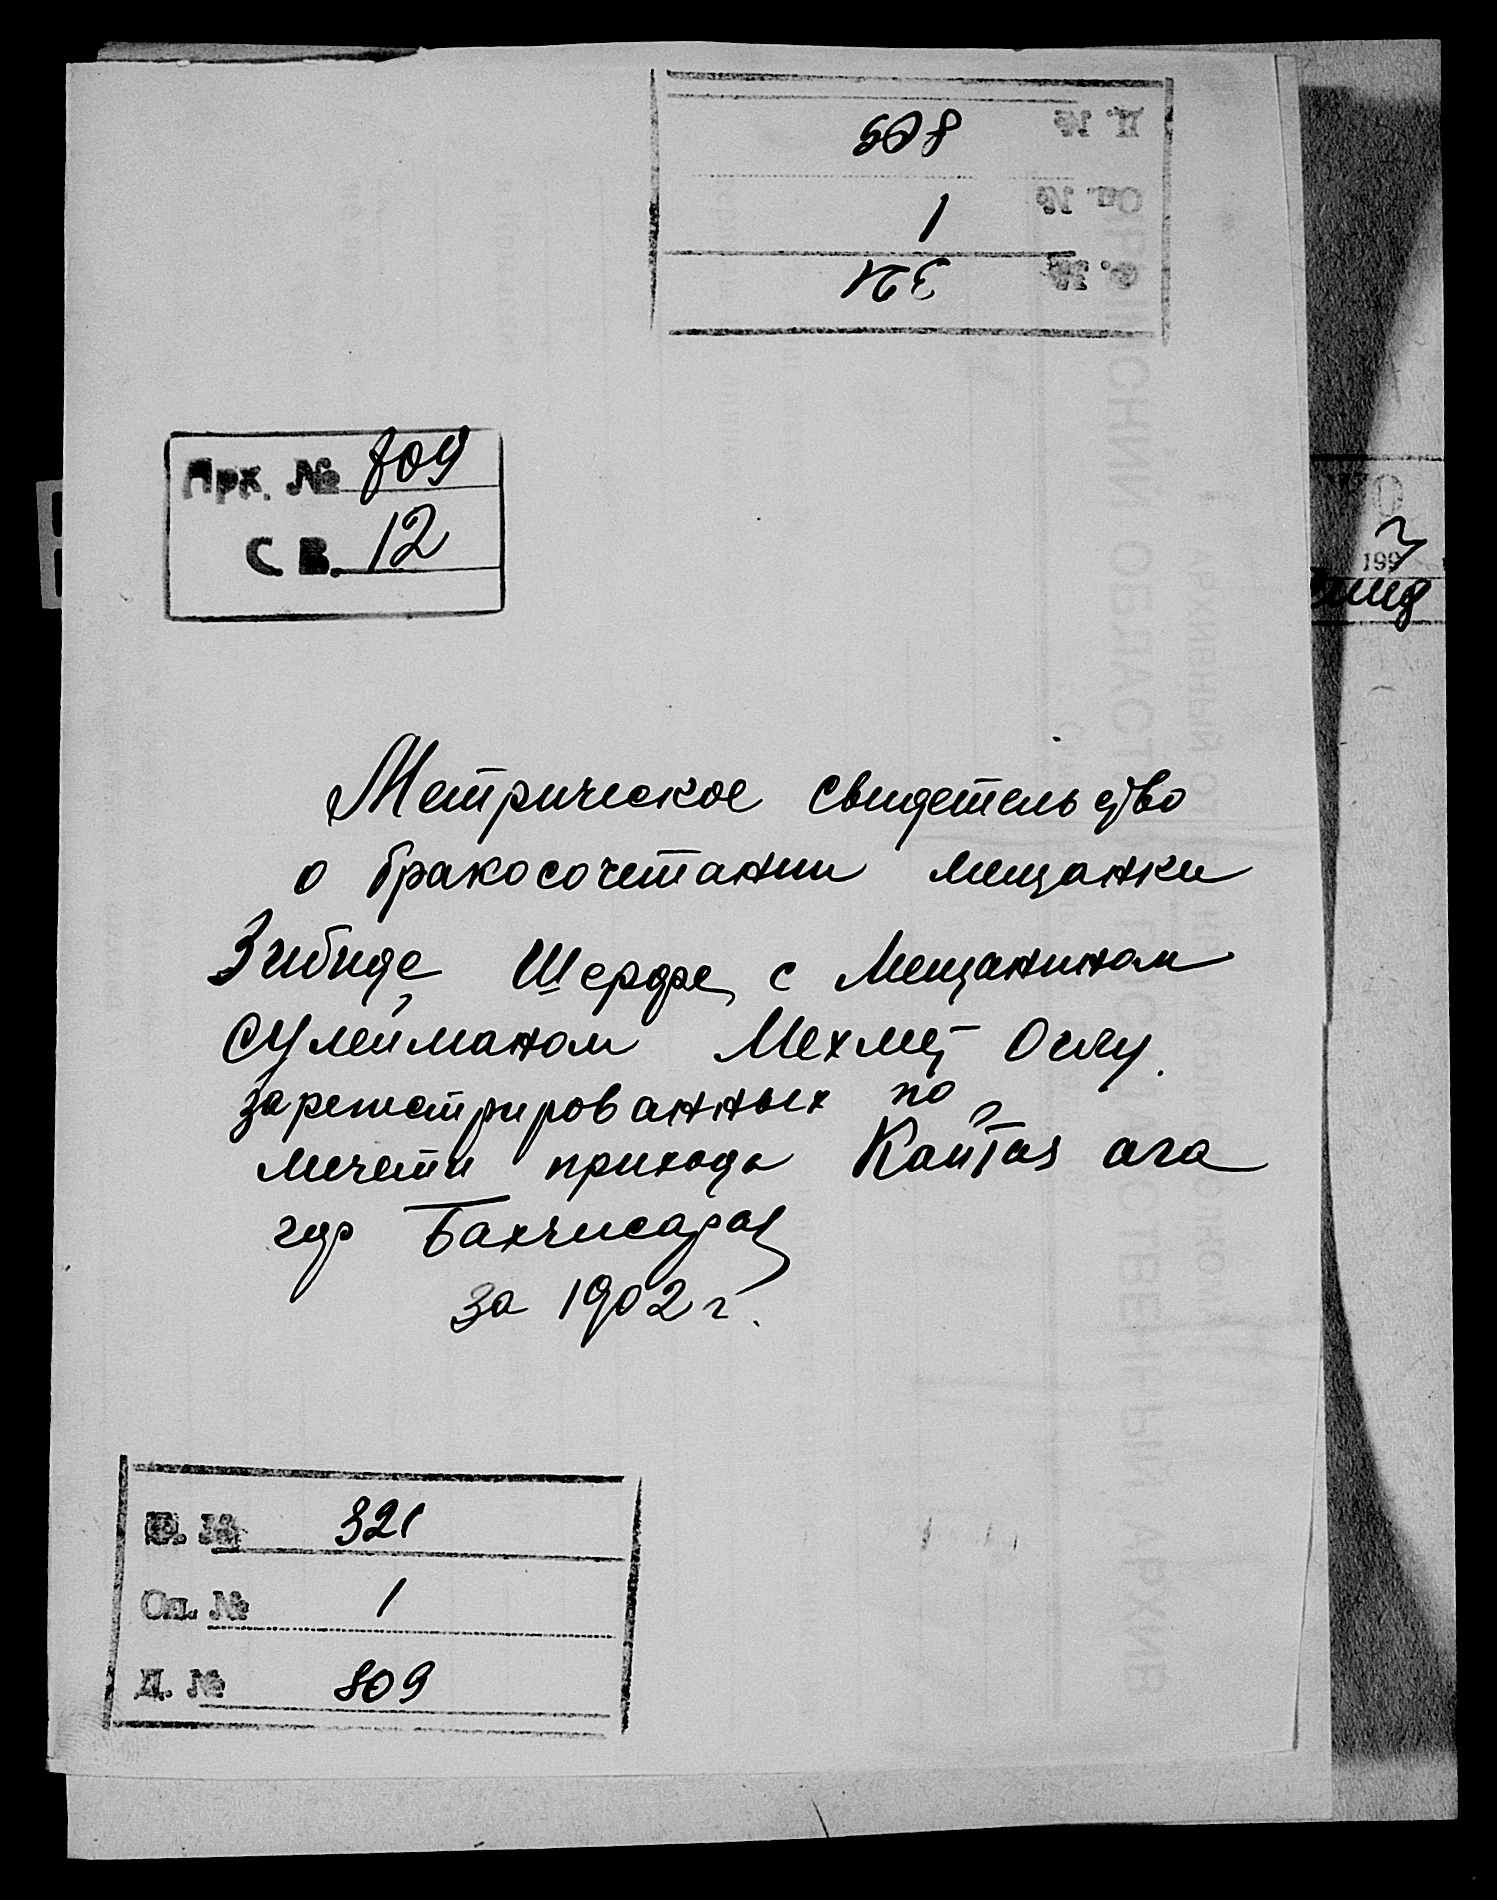 Д. №
809
Оп. №
1
Ф. №
321
Арх. № 809
С. В. 12
199
Метрическое свидетельство
о бракосочетании мещанки
Зибиде Шердфе, с Мещанином
Сулейманом Мехмет Оглу.
зарегистрированных по
мечети прихода Кайтаз ага
гор Бахчисарая
за 1902 г.
Ф. № 321
Оп. № 1
Д. № 809